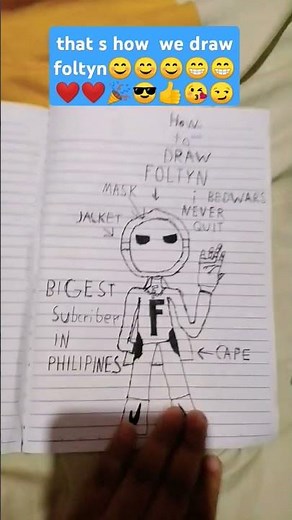 that s how we draw
foltyn😊😊😊😁😁
❤️❤️🎉😎👍😘😏
HOW
to
DRAW
FOLTYN
MASK
i BEDWARS
NEVER
QUIT
JACKET
F
BIGEST
Subcriber
IN
PHILIPINES
CAPE